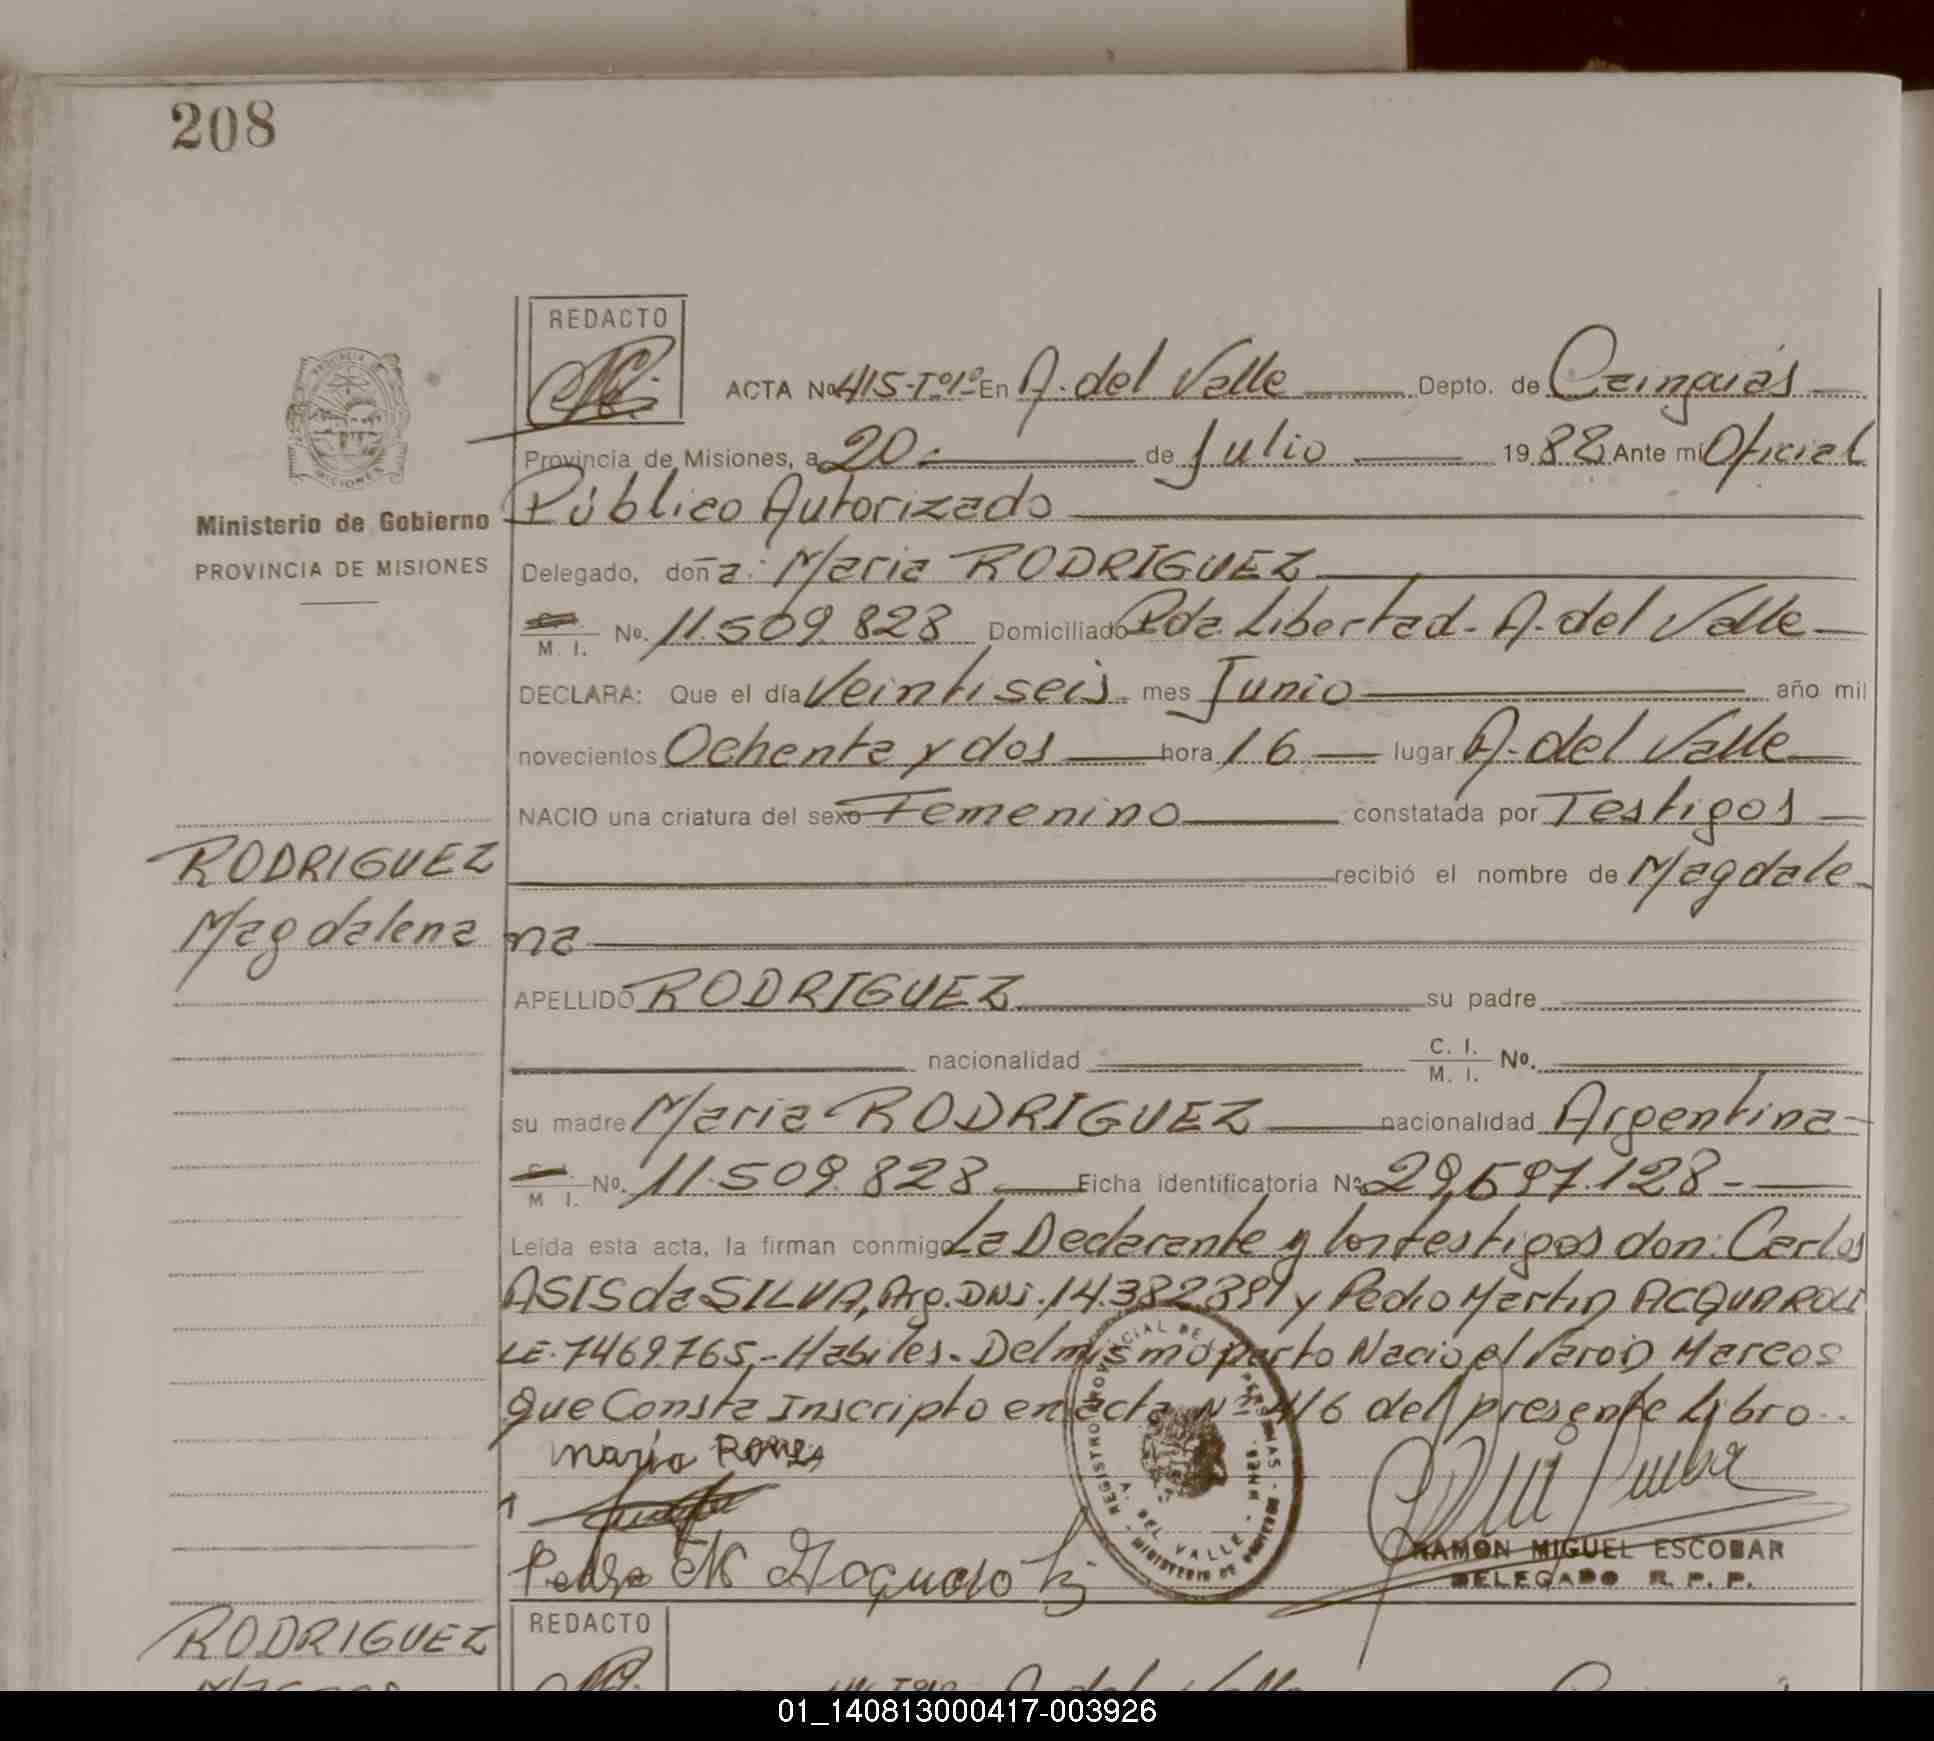 208
REDACTO
ACTA Nº 415-Tº1º En A. del Valle Depto. de Cainguás
Provincia de Misiones, a 20 de Julio 1988 Ante mi Oficial
Público Autorizado
Ministerio de Gobierno
PROVINCIA DE MISIONES
Delegado, doña: Maria RODRIGUEZ
M. I. No. 11.509.828 Domiciliado Pda. Libertad. A. del Valle
DECLARA: Que el día Veintiseis mes Junio año mil
novecientos Ochenta y dos hora 16 lugar A. del Valle
NACIO una criatura del sexo Femenino constatada por Testigos
RODRIGUEZ
recibió el nombre de Magdale
Magdalena
na
APELLIDO RODRIGUEZ su padre
nacionalidad C. I. M. I. No.
su madre Maria RODRIGUEZ nacionalidad Argentina
M. I. No. 11.509.828 Ficha identificatoria No. 29,597.128-
Leída esta acta, la firman conmigo La Declarante y los testigos don: Carlos
ASIS da SILVA, Arg. DNI. 14.382.891 y Pedro Martin ACQUAROLI
LE. 7469.765,- Habiles. Del mismo parto Nacio el Varon Marcos
que Consta Inscripto en acta Nº 416 del presente Libro.
REGISTRO PROVINCIAL DE LAS PERSONAS
A. DEL VALLE - MNES.
MINISTERIO DE GOBIERNO
RAMON MIGUEL ESCOBAR
DELEGADO R. P. P.
RODRIGUEZ
REDACTO
01_140813000417-003926